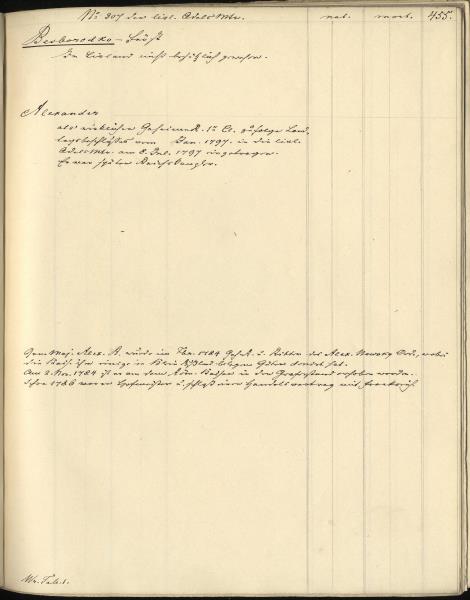 No 307 der livl. Adels Mtr. nat. mort. 455.
Besborodko – Fürst
In Livland nicht besitzlich gewesen.
Alexander
als wirklicher Geheimer R. 1r Cl. zufolge Land,
tagsbeschlusses vom Jan. 1797. in die livl.
Adels Mtr. am 8. Jul. 1797 eingetragen.
Er war später Reichskanzler.
Gen. Maj. Alex. B. wurde im 1784 Geh. R. u. Ritter des Alex. Newsky Ord., wobei
die Kais. ihm einige in Klein Rußland belegene Güter donirt hat.
Am 2. Nov. 1784 ist er von dem Röm. Kaiser in den Grafenstand erhoben worden.
Jahre 1786 war er Hofmeister u. schloß einen Handelsvertrag mit Frankreich.